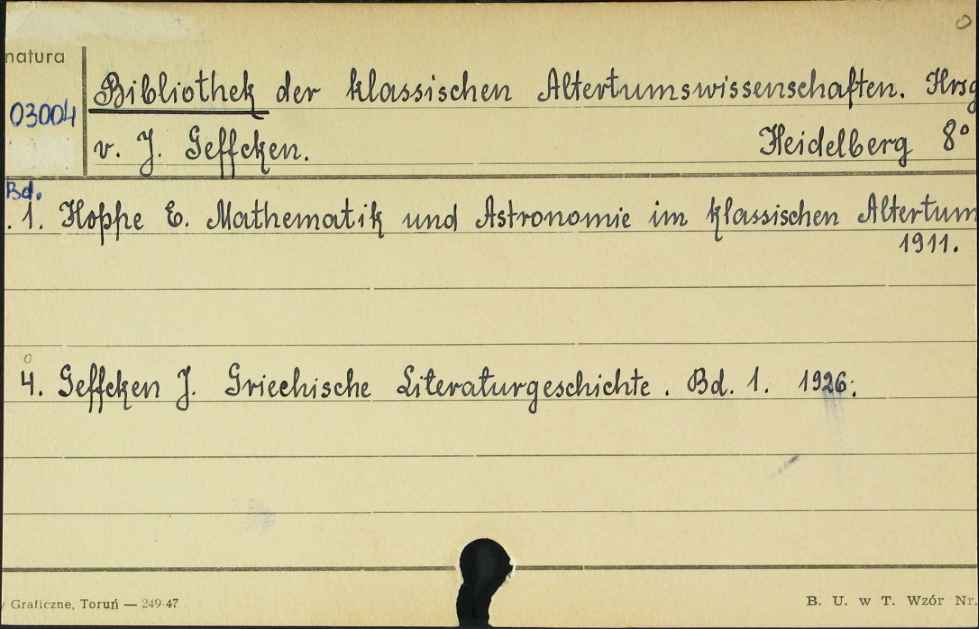 natura
03004
Bibliothek der klassischen Altertumswissenschaften. Hrsg
v. J. Geffcken. Heidelberg 8°
Bd.
. 1. Hoppe E. Mathematik und Astronomie im klassischen Altertum
1911.
4. Geffcken J. Griechische Literaturgeschichte. Bd. 1. 1926.
y Graficzne, Toruń — 249-47
B. U. w T. Wzór Nr.